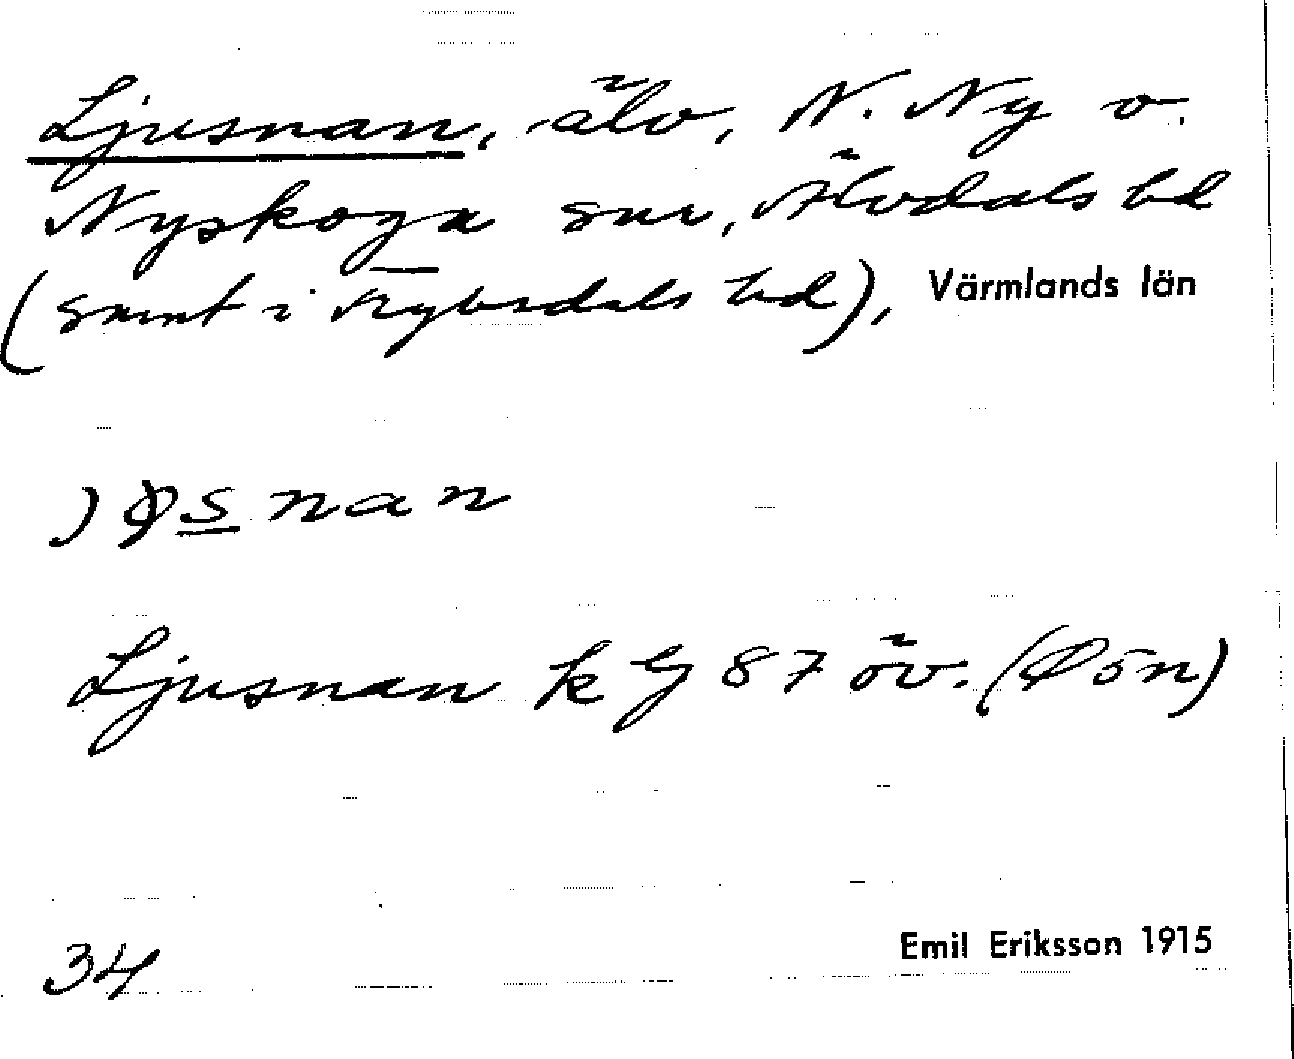 Ljusnan, älv, N. Ny o.
Nyskoga snr, Älvdals hd
(samt i Frykdals hd), Värmlands län
Ljusnan k bl 87 öv. (Ösn)
34
Emil Eriksson 1915